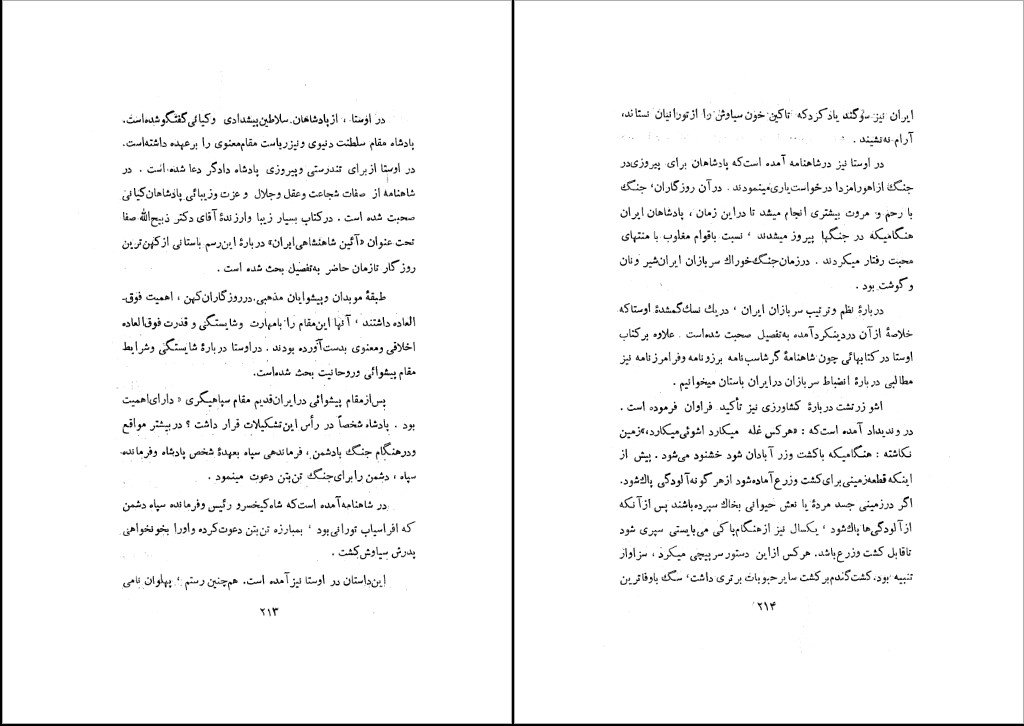 در اوستا ، از پادشاهان سلاطین پیشدادی و کیانی گفتگو شده است.
پادشاه مقام سلطنت دنیوی و نیز ریاست مقام معنوی را برعهده داشته است.
در اوستا از برای تندرستی و پیروزی پادشاه دادگر دعا شده است . در
شاهنامه از صفات شجاعت و عقل و جلال و عزت و زیبائی پادشاهان کیانی
صحبت شده است . در کتاب بسیار زیبا و ارزندهٔ آقای دکتر ذبیح‌الله صفا
تحت عنوان «آئین شاهنشاهی ایران» دربارهٔ این رسم باستانی از کهن‌ترین
روزگار تا زمان حاضر به‌تفصیل بحث شده است .
طبقهٔ موبدان و پیشوایان مذهبی، در روزگاران کهن ، اهمیت فوق‌ـ
العاده داشتند ، آنها این مقام را بامهارت و شایستگی و قدرت فوق‌العاده
اخلاقی و معنوی بدست آورده بودند . در اوستا دربارهٔ شایستگی و شرایط
مقام پیشوائی و روحانیت بحث شده است.
پس از مقام پیشوائی در ایران قدیم مقام سپاهیگری « دارای اهمیت
بود . پادشاه شخصاً در رأس این تشکیلات قرار داشت ؟ در بیشتر مواقع
و در هنگام جنگ بادشمن ، فرماندهی سپاه بعهدهٔ شخص پادشاه و فرمانده
سپاه ، دشمن را برای جنگ تن‌بتن دعوت مینمود .
در شاهنامه آمده است که شاه کیخسرو رئیس و فرمانده سپاه دشمن
که افراسیاب تورانی بود ، بمبارزه تن‌بتن دعوت کرده و اورا بخونخواهی
پدرش سیاوش کشت .
این داستان در اوستا نیز آمده است. هم‌چنین رستم ، پهلوان نامی
۲۱۳
ایران نیز سوگند یاد کرد که تا کین خون سیاوش را از تورانیان نستاند،
آرام نه‌نشیند .
در اوستا نیز در شاهنامه آمده است که پادشاهان برای پیروزی در
جنگ از اهورامزدا درخواست یاری مینمودند . در آن روزگاران، جنگ
با رحم و مروت بیشتری انجام میشد تا در این زمان ، پادشاهان ایران
هنگامیکه در جنگها پیروز میشدند ، نسبت باقوام مغلوب با منتهای
محبت رفتار میکردند . در زمان جنگ خوراك سربازان ایران شیر و نان
و گوشت بود .
دربارهٔ نظم و ترتیب سربازان ایران ، در یك نسك گمشدهٔ اوستا که
خلاصهٔ از آن در دینکرد آمده به‌تفصیل صحبت شده است . علاوه بر کتاب
اوستا در کتابهائی چون شاهنامهٔ گرشاسب‌نامه برزونامه و فرامرزنامه نیز
مطالبی دربارهٔ انضباط سربازان در ایران باستان میخوانیم .
اشو زرتشت دربارهٔ کشاورزی نیز تأکید فراوان فرموده است .
در وندیداد آمده است که : «هرکس غله میکارد اشوئی میکارد،» زمین
نکاشته : هنگامیکه باکشت و زر آبادان شود خشنود می‌شود . بیش از
اینکه قطعه زمینی برای کشت و زرع آماده شود از هر گونه آلودگی پاك شود.
اگر در زمینی جسد مردهٔ یا نعش حیوانی بخاك سپرده باشند پس از آنکه
از آلودگی‌ها پاك شود ، یکسال نیز از هنگام پاکی می‌بایستی سپری شود
تا قابل کشت و زرع باشد. هرکس از این دستور سرپیچی میکرد ، سزاوار
تنبیه بود. کشت گندم بر کشت سایر حبوبات برتری داشت، سگ باوفاترین
۲۱۴